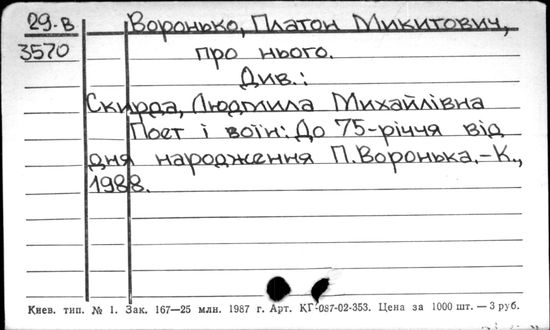 29.В
3570
Воронько, Платон Микитович,
про нього.
Див.:
Скирда, Людмила Михайлівна
Поет і воїн: До 75-річчя від
дня народження П.Воронька.-К.,
1988.
Киев. тип. № 1. Зак. 167—25 млн. 1987 г. Арт. КГ-087-02-353. Цена за 1000 шт. — 3 руб.